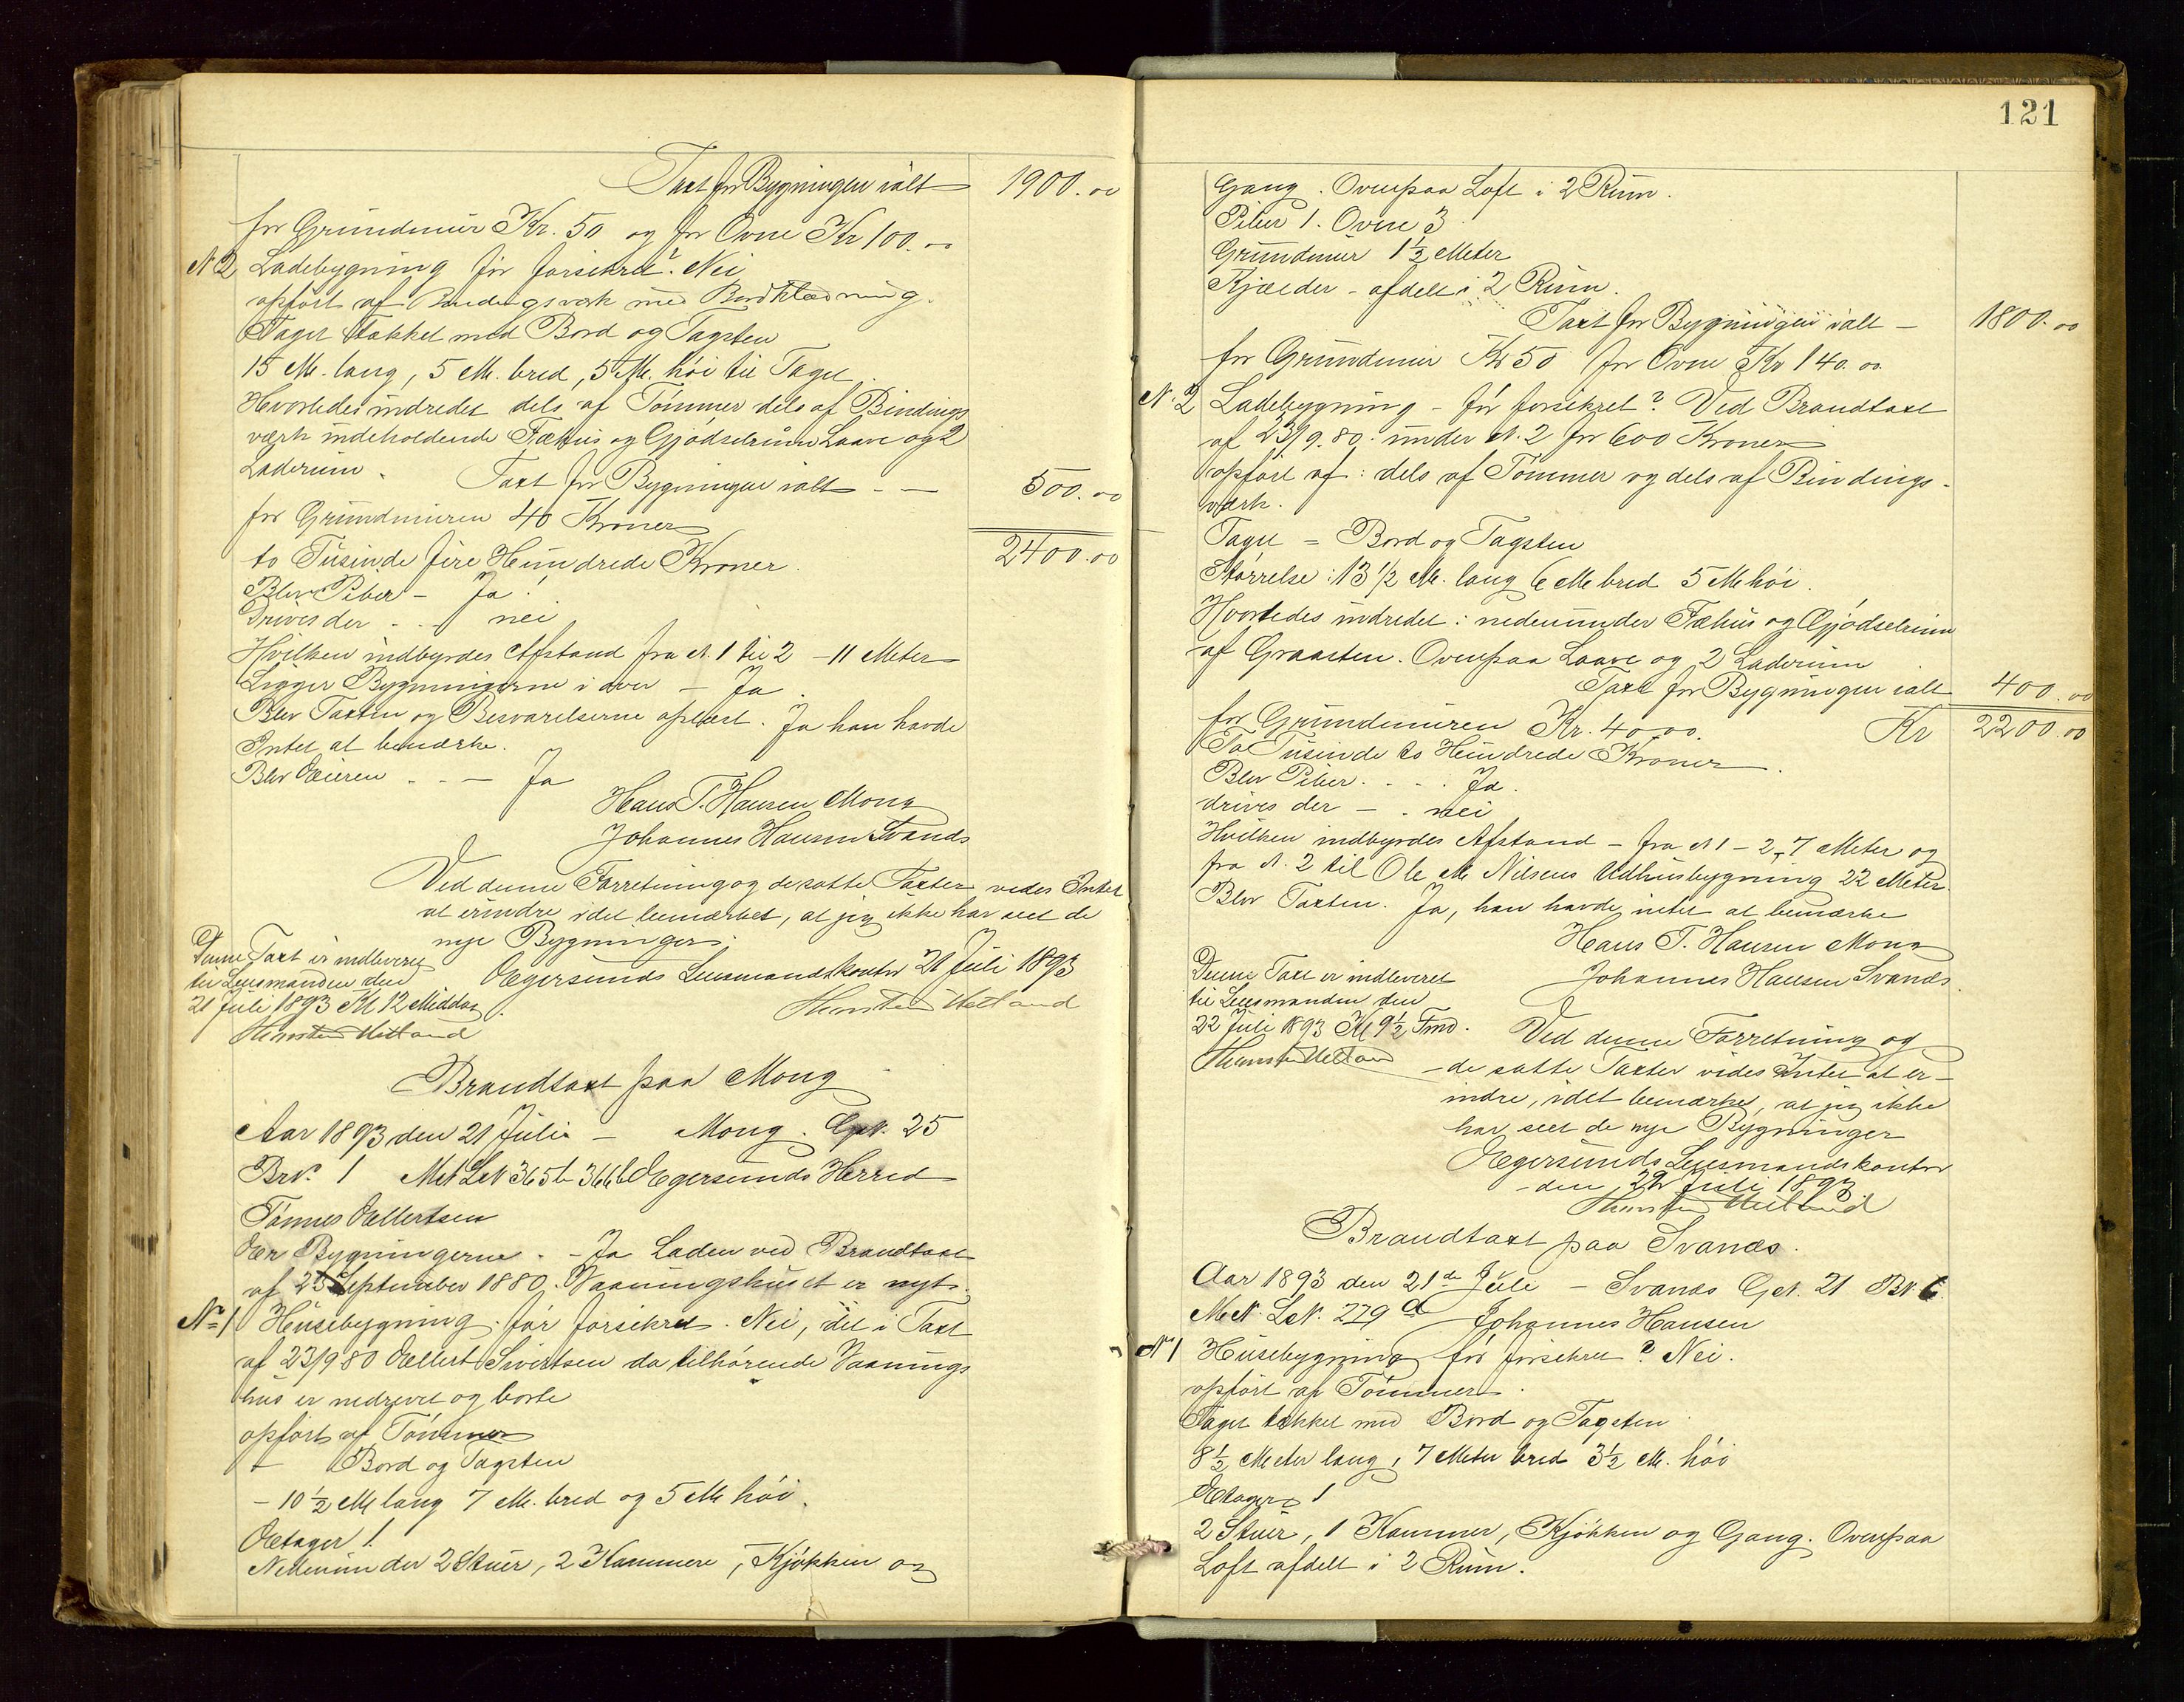 Taxt for Bygningen ialt 1900.00
for Grundmur Kr. 50 og for Ovne Kr 100.00
N 2 Ladebygning før forsikret? Nei
opført af Bindingsværk med Bordklædning.
Taget tækket med Bord og Tagsten
15 M. lang, 5 M. bred, 5 M. høi til Taget.
Hvorledes indredet dels af Tømmer dels af Bindings
værk indeholdende Fæhus og Gjødselrum Laave og 2
Laderum. Taxt for Bygningen ialt - — 500.00
for Grundmuren 40 Kroner
to Tusinde fire Hundrede Kroner. 2400.00
Blev Piber - Ja!
Drives der - - nei
Hvilken indbyrdes Afstand fra N. 1 til 2 - 11 Meter
Ligger Bygningerne i - Ja.
Blev Taxten og Besvarelserne oplæst. Ja han havde
Intet at bemærke.
Blev Eieren - - — Ja
Hans T. Hansen Mong
Johannes Hansen Svanæs
Ved denne Forretning og de satte Taxter vides Intet
at erindre idet bemærket, at jeg ikke har seet de
nye Bygninger.
Egersunds Lensmandskontor 21 Juli 1893
Denne Taxt er indleveret
til Lensmanden den
21 Juli 1893 Kl 12 Middag.
Brandtaxt paa Mong
Aar 1893 den 21 Juli - Mong. Gr. 25
Brn. 1 Mat Ln 365b 366b Egersunds Herred
Tønnes Ellertsen
Er Bygningerne - - Ja Laden ved Brandtaxt
af 23 September 1880. Vaaningshuset er nyt.
No 1 Husebygning. før forsikret. Nei, det i Taxt
af 23/9 80 Ellert Sivertsen da tilhørende Vaanings
hus er nedrevet og borte
opført af Tømmer
+ Bord og Tagsten
- 10 1/2 M lang 7 M. bred og 5 M høi.
Etager 1.
Nedenunder 2 Stuer, 2 Kammere, Kjøkken og
121
Gang. Ovenpaa Loft i 2 Rum.
Piber 1. Ovne 3
Grundmur 1 1/2 Meter
Kjælder - afdelt i 2 Rum.
Taxt for Bygningen ialt - 1800.00
for Grundmur Kr 50 for Ovne Kr 140.00
N. 2 Ladebygning - før forsikret? Ved Brandtaxt
af 23/9.80. under N. 2 for 600 Kroner
opført af: dels af Tømmer og dels af Bindings-
værk.
Taget = Bord og Tagsten
Størrelse: 13 1/2 M. lang 6 M bred 5 M høi.
Hvorledes indredet: nedenunder Fæhus og Gjødselrum
af Graasten. Ovenpaa Laave og 2 Laderum.
Taxt for Bygningen ialt 400.00
for Grundmuren Kr. 40.00. Kr 2200.00
To Tusinde to Hundrede Kroner.
Blev Piber. - - . Ja.
drives der - . nei
Hvilken indbyrdes Afstand - fra N 1 - 2, 7 Meter og
fra N. 2 til Ole M. Nilsens Udhusbygning 22 Meter.
Blev Taxten. Ja, han havde intet at bemærke
Hans T. Hansen Mong
Johannes Hansen Svanæs.
Denne Taxt er indleveret
til Lensmanden den
22 Juli 1893 Kl 9 1/2 Fmd.
Ved denne Forretning og
de satte Taxter vides Intet at er-
indre, idet bemærket, at jeg ikke
har seet de nye Bygninger
Egersunds Lensmandskontor
- den 22 Juli 1893.
Brandtaxt paa Svanæs.
Aar 1893 den 21de Juli - Svanæs Gr. 21 Bn. 6
M.N. L.N. 279 d Johannes Hansen
N 1 Husebygning før forsikret? Nei.
opført af Tømmer.
Taget tækket med Bord og Tagsten
8 1/2 Meter lang, 7 Meter bred 3 1/2 M. høi
Etager 1
2 Stuer, 1 Kammer, Kjøkken og Gang. Ovenpaa
Loft afdelt i 2 Rum.